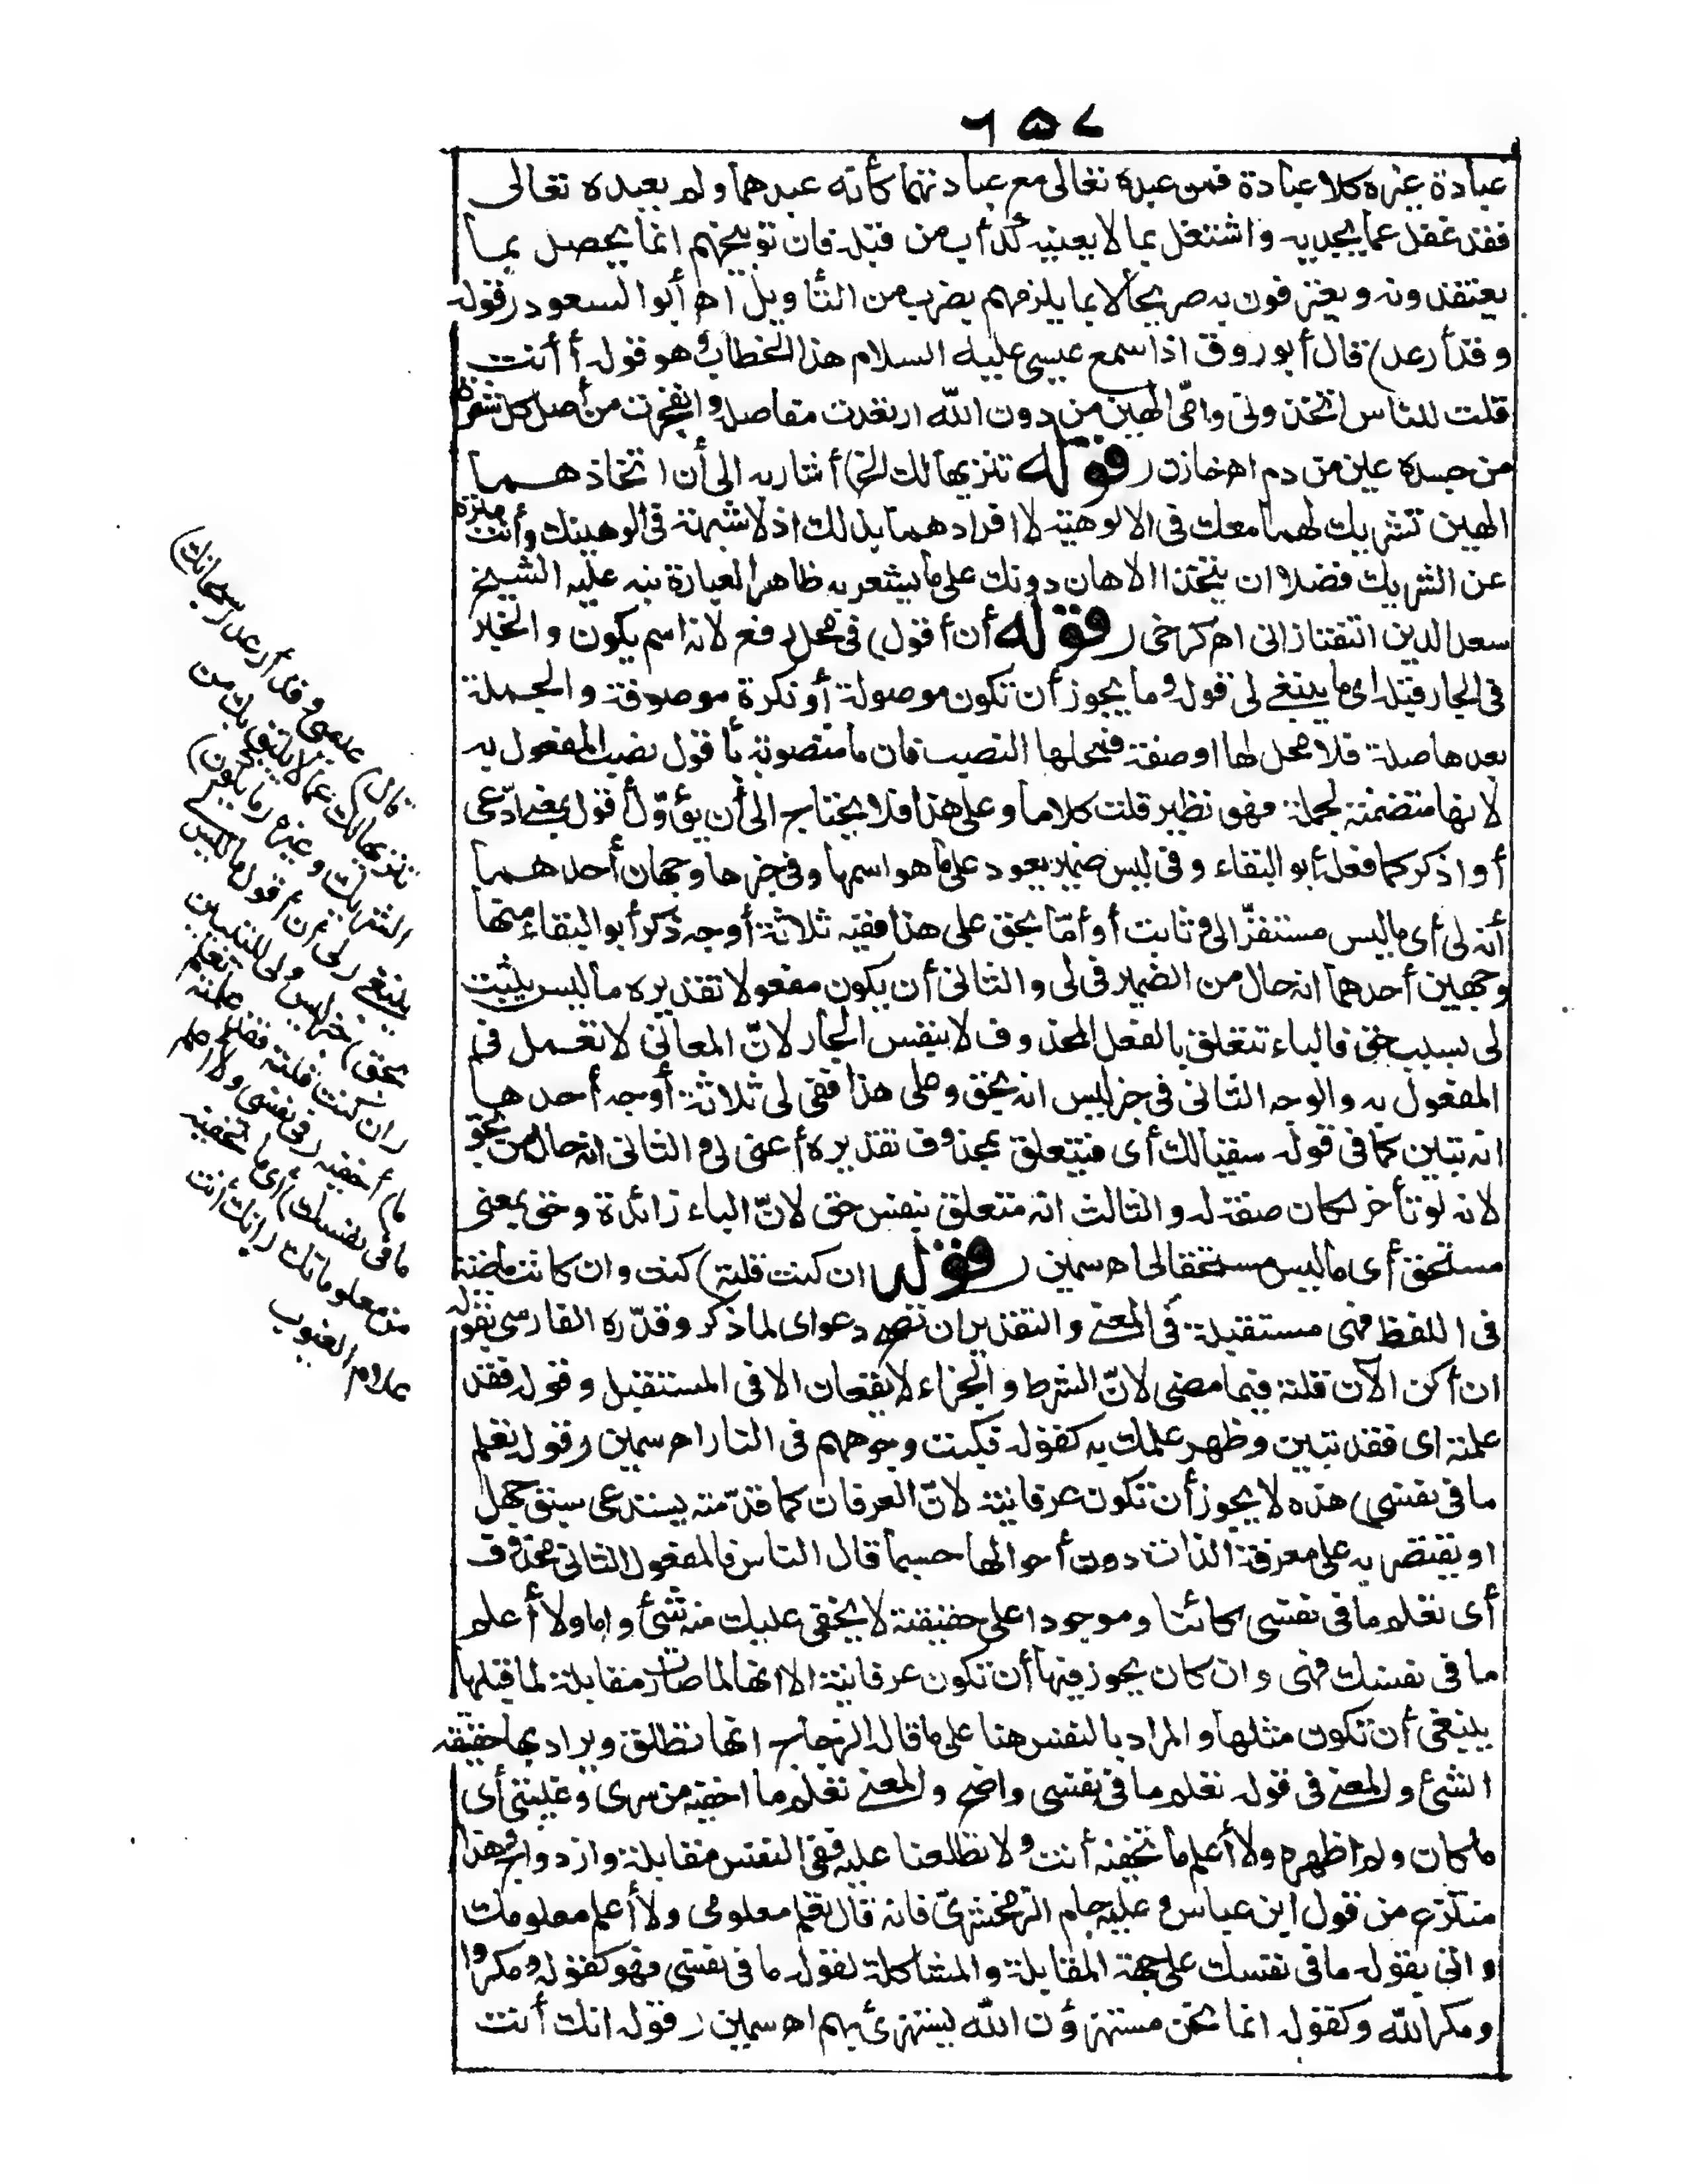 ٦٥٧
عبادة غيره كلا عبادة فمن عبده تعالى مع عبادتهما كأنه عبدهما ولم يعبده تعالى
فقد غفل عما يجديه واشتغل بما لا يعنيه كدأب من قبله فان توبيخهم انما يحصل بما
يعتقدونه ويعترفون به صريحا لا بما يلزمهم بضرب من التأويل اه أبو السعود (قوله
وقد أرعد) قال أبو روق اذا سمع عيسى عليه السلام هذا الخطاب وهو قوله أأنت
قلت للناس اتخذوني وامّي الهين من دون الله ارتعدت مفاصله وانفجرت من أصل كل شعرة
من جسده عين من دم اه خازن (قوله تنزيها لك الخ) أشار به الى أن اتخاذهما
الهين تشريك لهما معك في الالوهية لا افرادهما بذلك اذ لا شبهة في الوهيتك وأنت منزه
عن الشريك فضلا ان يتخذ الاهان دونك على ما يشعر به ظاهر العبارة نبه عليه الشيخ
سعد الدين التفتازاني اه كرخي (قوله أن أقول) في محل رفع لانه اسم يكون والخبر
في الجار قبله اى ما ينبغي لي قوله وما يجوز أن تكون موصولة أو نكرة موصوفة والجملة
بعدها صلة فلا محل لها او صفة فمحلها النصب فان ما منصوبة بأقول نصب المفعول به
لانها متضمنة لجملة فهو نظير قلت كلاما وعلى هذا فلا يحتاج الى أن يؤوّل أقول بمعنى ادّعى
أو اذكر كما فعله أبو البقاء وفي ليس ضمير يعود على ما هو اسمها وفي خبرها وجهان أحدهما
أنه لي أى ما ليس مستقرّا لي وثابتا وأمّا بحق على هذا ففيه ثلاثة أوجه ذكر أبو البقاء منها
وجهين أحدهما انه حال من الضمير في لي والثاني أن يكون مفعولا تقديره ما ليس يثبت
لي بسبب حق فالباء تتعلق بالفعل المحذوف لا بنفس الجار لانّ المعاني لا تعمل في
المفعول به والوجه الثاني في خبر ليس انه بحق وعلى هذا ففي لي ثلاثة أوجه أحدها
انه تبيين كما في قوله سقيا لك أى فيتعلق بمحذوف تقديره أعنى لي والثاني انه حال من بحق
لانه لو تأخر لكان صفة له والثالث انه متعلق بنفس حق لانّ الباء زائدة وحق بمعنى
مستحق أى ما ليس مستحقا لي اه سمين (قوله ان كنت قلته) كنت وان كانت ماضية
في اللفظ فهى مستقبلة في المعنى والتقدير ان تصح دعواى لما ذكر وقدّره الفارسي بقوله
ان أكن الآن قلته فيما مضى لانّ الشرط والجزاء لا يقعان الا في المستقبل وقوله فقد
علمته اى فقد تبين وظهر علمك به كقوله فكبت وجوههم في النار اه سمين (قوله تعلم
ما في نفسى) هذه لا يجوز أن تكون عرفانية لانّ العرفان كما قدّمته يستدعى سبق جهل
او يقتصر به على معرفة الذات دون أحوالها حسبما قال الناس فالمفعول الثاني محذوف
أى تعلم ما في نفسى كائنا وموجودا على حقيقته لا يخفى عليك منه شئ واما ولا أعلم
ما في نفسك فهى وان كان يجوز فيها أن تكون عرفانية الا انها لما صارت مقابلة لما قبلها
ينبغى أن تكون مثلها والمراد بالنفس هنا على ما قاله الزجاج انها تطلق ويراد بها حقيقة
الشئ والمعنى في قوله تعلم ما في نفسى واضح والمعنى تعلم ما اخفيه من سرى وغيبتي أى
ما كان ولم اظهره ولا أعلم ما تخفيه أنت ولا تطلعنا عليه ففي النفس مقابلة وازدواج وهذا
منتزع من قول ابن عباس وعليه حام الزمخشرىّ فانه قال تعلم معلومى ولا أعلم معلومك
واتى بقوله ما في نفسك على جهة المقابلة والمشاكلة لقوله ما في نفسى فهو كقوله ومكروا
ومكر الله وكقوله انما نحن مستهزؤن الله يستهزئ بهم اه سمين (قوله انك أنت
(قال) عيسى وقد أرعد (سبحانك)
تنزيها لك عما لا يليق بك من
الشريك وغيره (ما يكون)
ينبغي (لى أن أقول ما ليس لى
بحق) خبر ليس ولى للتبيين
(ان كنت قلته فقد علمته تعلم
ما) أخفيه (في نفسى ولا أعلم
ما في نفسك) أى ما تخفيه
من معلوماتك (انك أنت
علام الغيوب